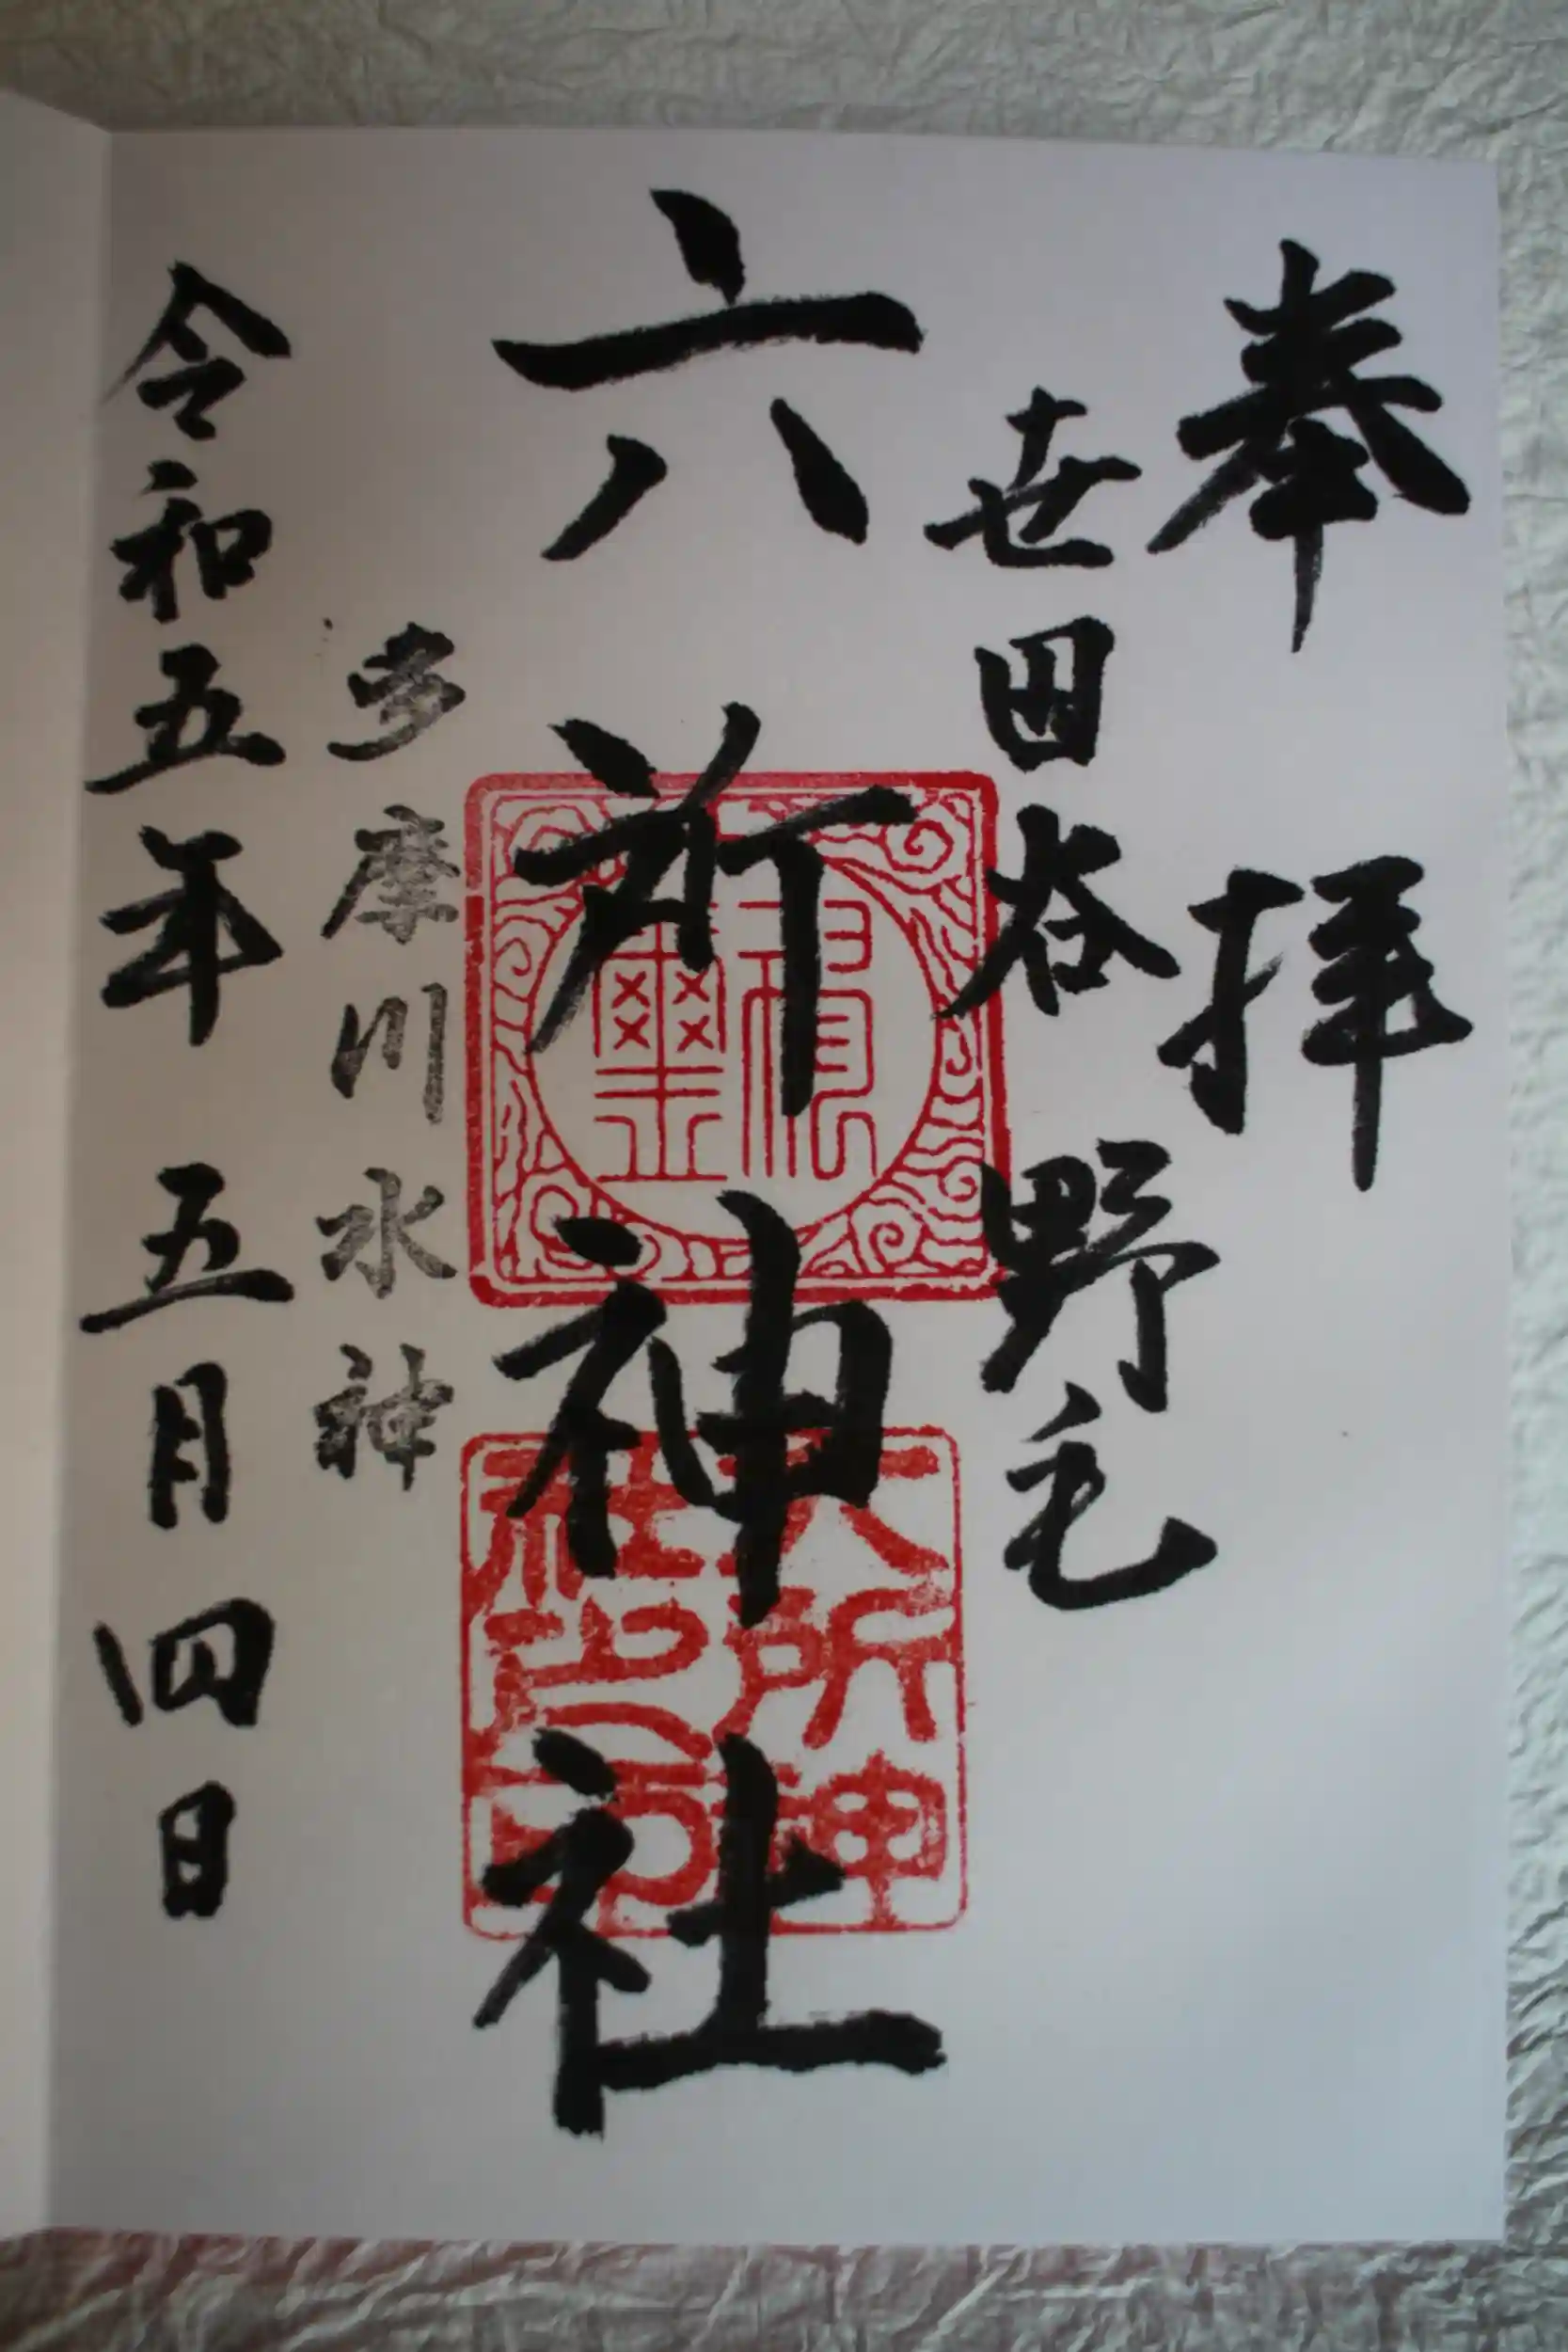 奉拝
世田谷 野毛
六所神社
多摩川水神
令和五年 五月四日
六所神社之印